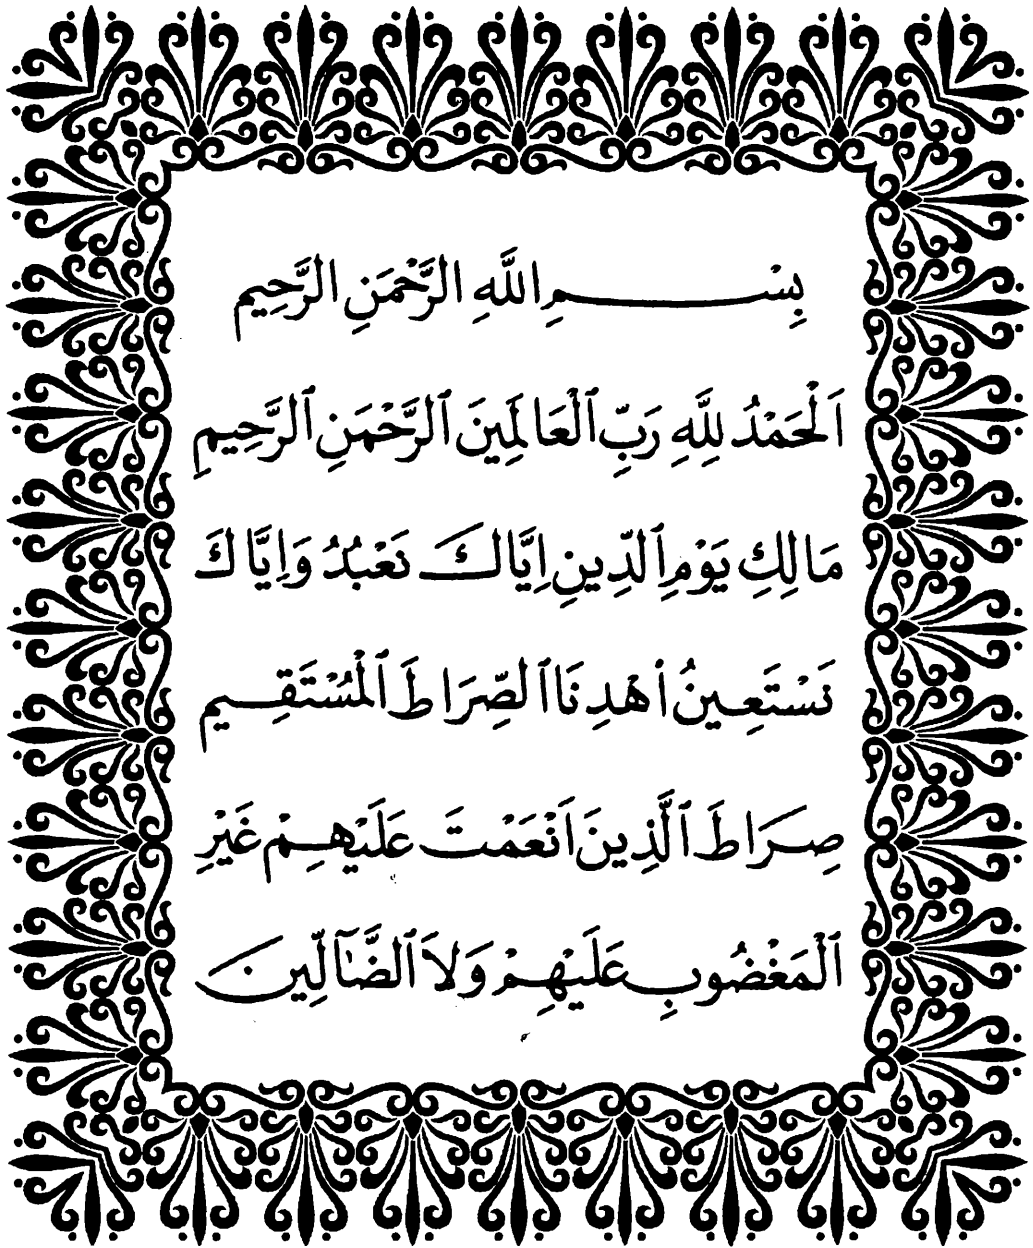 بِسْمِ اللَّهِ الرَّحْمَنِ الرَّحِيمِ
اَلْحَمْدُ لِلَّهِ رَبِّ ٱلْعَالَمِينَ ٱلرَّحْمَنِ ٱلرَّحِيمِ
مَالِكِ يَوْمِ ٱلدِّينِ اِيَّاكَ نَعْبُدُ وَاِيَّاكَ
نَسْتَعِينُ اْهْدِنَا ٱلصِّرَاطَ ٱلْمُسْتَقِيمَ
صِرَاطَ ٱلَّذِينَ اَنْعَمْتَ عَلَيْهِمْ غَيْرِ
ٱلْمَغْضُوبِ عَلَيْهِمْ وَلاَ ٱلضَّآلِّينَ